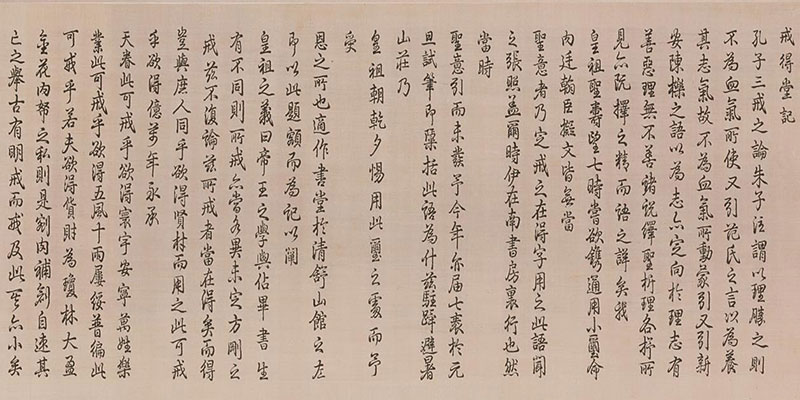 戒得堂記
孔子三戒之論朱子注謂以理勝之則
不為血氣所使又引范氏之言以為養
其志氣故不為血氣所動蒙引又引新
安陳櫟之語以為志亦定向於理志有
善惡理無不善諸說繹聖析理各抒所
見亦既擇之精而語之詳矣我
皇祖聖壽望七時嘗欲鐫通用小璽命
內廷翰臣擬文皆無當
聖意者乃定戒之在得字用之此語聞
之張照蓋爾時伊在南書房裏行也然
當時
聖意引而未發予今年亦屆七袠於元
旦試筆即檃括此語為什茲駐蹕避暑
山莊乃
皇祖朝乾夕惕用此璽之處而予
受
恩之所也適作書堂於清舒山館之左
即以此題額而為記以闡
皇祖之義曰帝王之學與佔畢書生
有不同則所戒亦當各異未定方剛之
戒茲不復論茲所戒者當在得矣而得
豈與庶人同乎欲得賢材而用之此可戒
乎欲得億萬年永承
天眷此可戒乎欲得寰宇安寧萬姓樂
業此可戒乎欲得五風十雨屢綏普徧此
可戒乎若夫欲得貨財為瓊林大盈
金花內帑之私則是剜肉補創自速其
亡之舉古有明戒而戒及此軍亦小矣